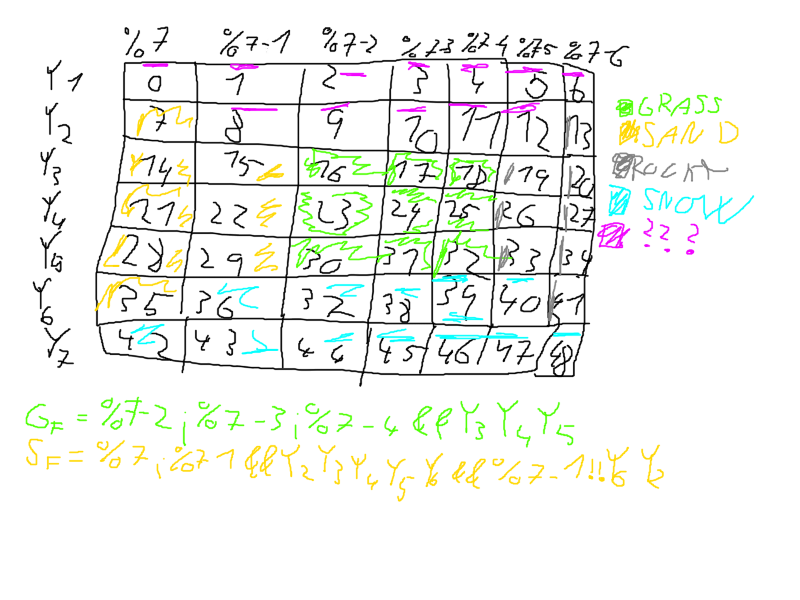 %7 %7-1 %7-2 %7-3 %7-4 %75 %7-6
Y1 0 1 2 3 4 5 6
Y2 7 8 9 10 11 12 13
Y3 14 15 16 17 18 19 20
Y4 21 22 23 24 25 26 27
Y5 28 29 30 31 32 33 34
Y6 35 36 32 38 39 40 41
Y7 42 43 44 45 46 47 48
GRASS
SAND
ROCKY
SNOW
???
GF = %7-2;%7-3;%7-4 && Y3 Y4 Y5
SF = %7;%7-1 && Y2 Y3 Y4 Y5 Y6 && %7-1!!Y6 Y2